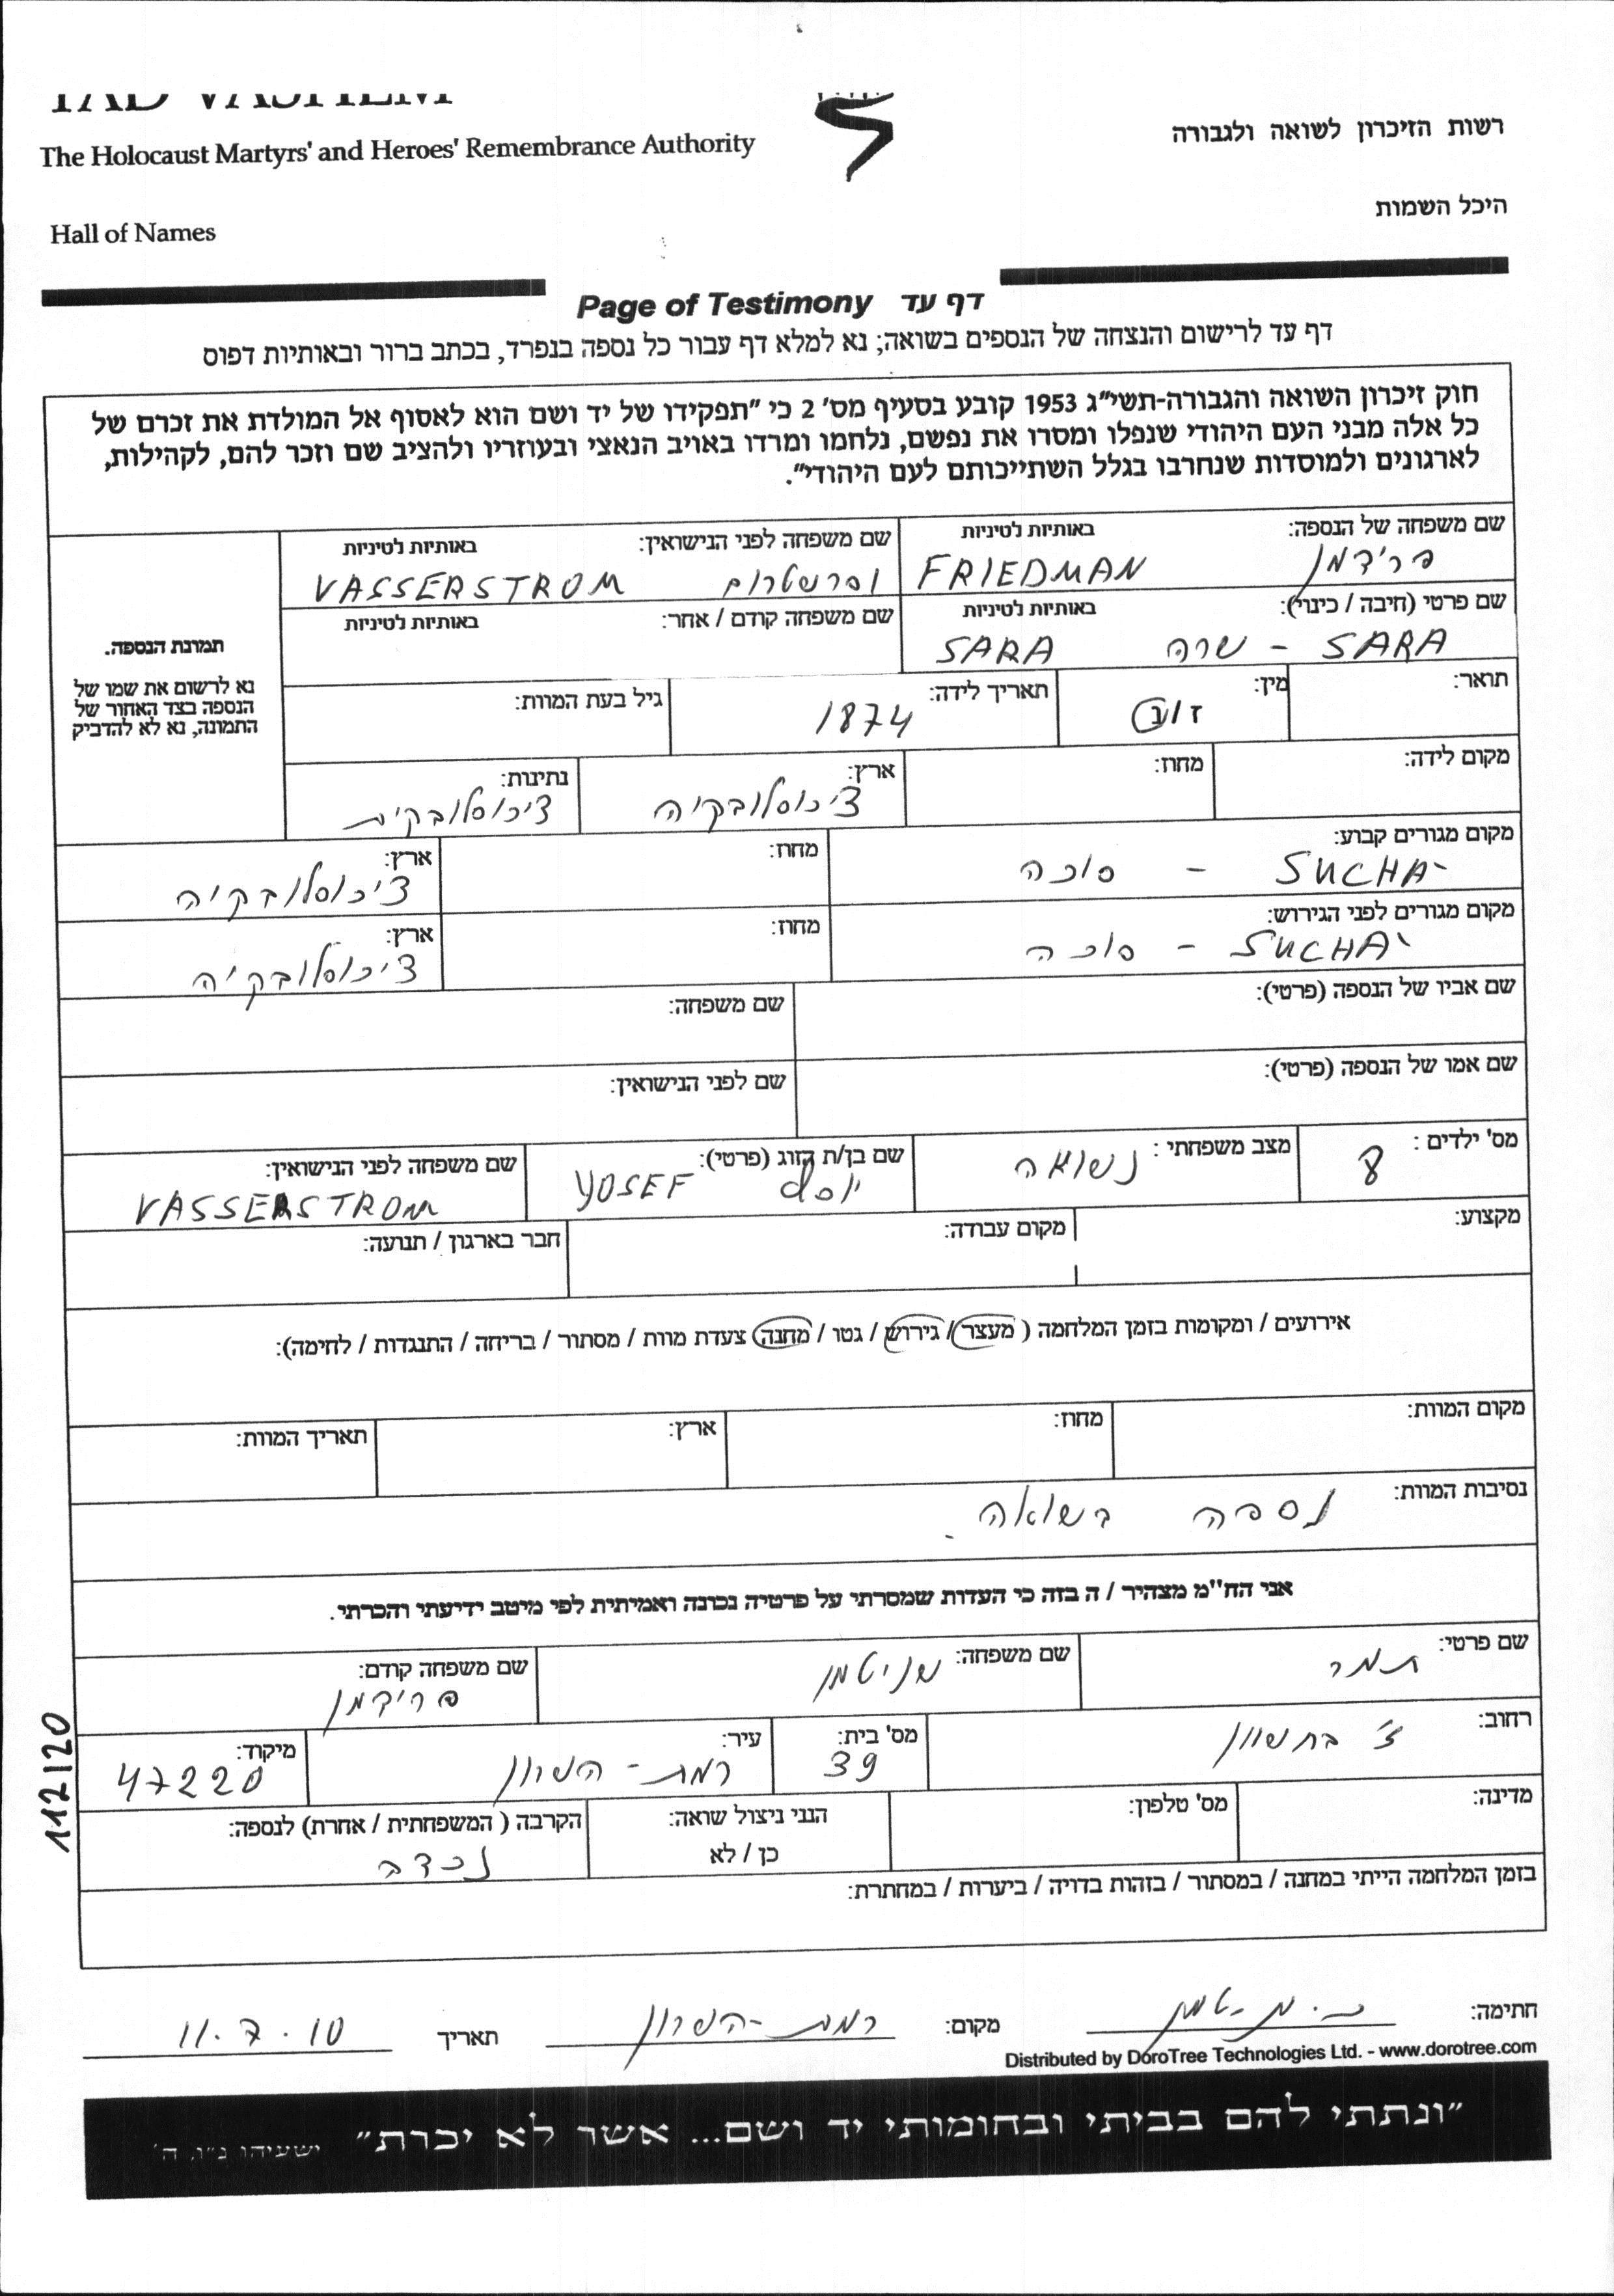 The Holocaust Martyrs' and Heroes' Remembrance Authority
רשות הזיכרון לשואה ולגבורה
Hall of Names
היכל השמות
Page of Testimony דף עד
דף עד לרישום והנצחה של הנספים בשואה; נא למלא דף עבור כל נספה בנפרד, בכתב ברור ובאותיות דפוס
חוק זיכרון השואה והגבורה-תשי״ג 1953 קובע בסעיף מס' 2 כי ״תפקידו של יד ושם הוא לאסוף אל המולדת את זכרם של
כל אלה מבני העם היהודי שנפלו ומסרו את נפשם, נלחמו ומרדו באויב הנאצי ובעוזריו ולהציב שם וזכר להם, לקהילות,
לארגונים ולמוסדות שנחרבו בגלל השתייכותם לעם היהודי״.
שם משפחה של הנספה: באותיות לטיניות
פרידמן FRIEDMAN
שם משפחה לפני הנישואין: באותיות לטיניות
וסרשטרום VASSERSTROM
שם פרטי (חיבה / כינוי): באותיות לטיניות
SARA - שרה SARA
שם משפחה קודם / אחר: באותיות לטיניות
תמונת הנספה.
נא לרשום את שמו של
הנספה בצד האחור של
התמונה, נא לא להדביק
תואר:
מין:
ז / נ
תאריך לידה:
1874
גיל בעת המוות:
מקום לידה:
מחוז:
ארץ:
צ'כוסלובקיה
נתינות:
צ'כוסלובקית
מקום מגורים קבוע:
SUCHA - סוכה
מחוז:
ארץ:
צ'כוסלובקיה
מקום מגורים לפני הגירוש:
SUCHA - סוכה
מחוז:
ארץ:
צ'כוסלובקיה
שם אביו של הנספה (פרטי):
שם משפחה:
שם אמו של הנספה (פרטי):
שם לפני הנישואין:
מס' ילדים :
8
מצב משפחתי :
נשואה
שם בן/ת הזוג (פרטי):
יוסף YOSEF
שם משפחה לפני הנישואין:
VASSERSTROM
מקצוע:
מקום עבודה:
חבר בארגון / תנועה:
אירועים / ומקומות בזמן המלחמה ( מעצר / גירוש / גטו / מחנה / צעדת מוות / מסתור / בריחה / התנגדות / לחימה):
מקום המוות:
מחוז:
ארץ:
תאריך המוות:
נסיבות המוות:
נספה בשואה.
אני הח"מ מצהיר / ה בזה כי העדות שמסרתי על פרטיה נכונה ואמיתית לפי מיטב ידיעתי והכרתי.
שם פרטי:
תמר
שם משפחה:
שניטמן
שם משפחה קודם:
פרידמן
רחוב:
ז' בחשוון
מס' בית:
39
עיר:
רמת-השרון
מיקוד:
47220
מדינה:
מס' טלפון:
הנני ניצול שואה:
כן / לא
הקרבה ( המשפחתית / אחרת) לנספה:
נכדה
בזמן המלחמה הייתי במחנה / במסתור / בזהות בדויה / ביערות / במחתרת:
112120
חתימה:
מקום: רמת-השרון
תאריך 11.7.10
Distributed by DoroTree Technologies Ltd. - www.dorotree.com
״ונתתי להם בביתי ובחומותי יד ושם... אשר לא יכרת״ ישעיהו נ״ו, ה'